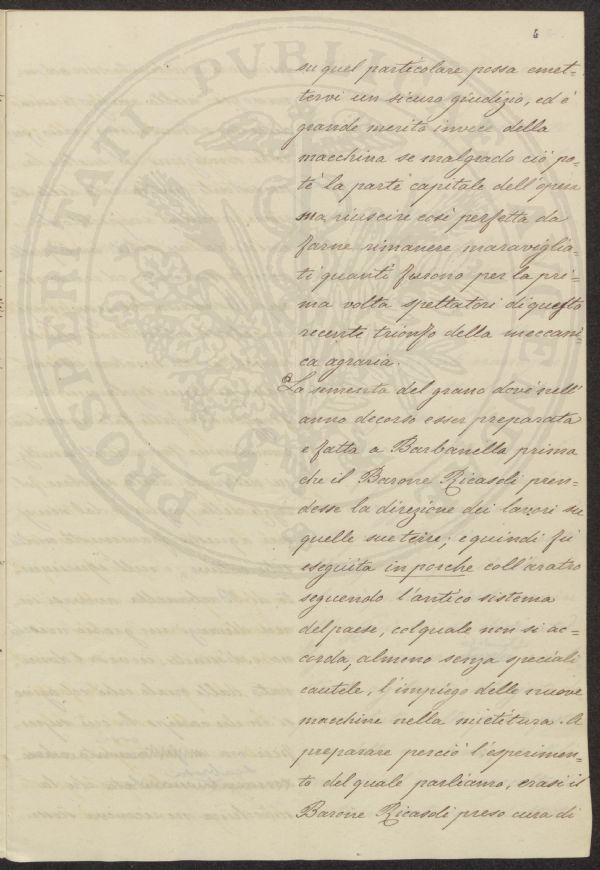 4
su quel particolare possa emet-
tervi un sicuro giudizio, ed è
grande merito invece della
macchina se malgrado ciò po-
tè la parte capitale dell'opera
sua, riuscire così perfetta da
farne rimanere maraviglia-
ti quanti furono per la pri-
ma volta spettatori di questo
recente trionfo della meccani-
ca agraria.
La sementa del grano dovè nell'
anno decorso esser preparata
e fatta a Barbanella prima
che il Barone Ricasoli pren-
desse la direzione dei lavori su
quelle sue terre; e quindi fù
eseguita in porche coll'aratro
seguendo l'antico sistema
del paese, col quale non si ac-
corda, almeno senza speciali
cautele, l'impiego delle nuove
macchine nella mietitura. A
preparare perciò l'esperimen-
to del quale parliamo, erasi il
Barone Ricasoli preso cura di
PROSPERITATI PVBLICAE